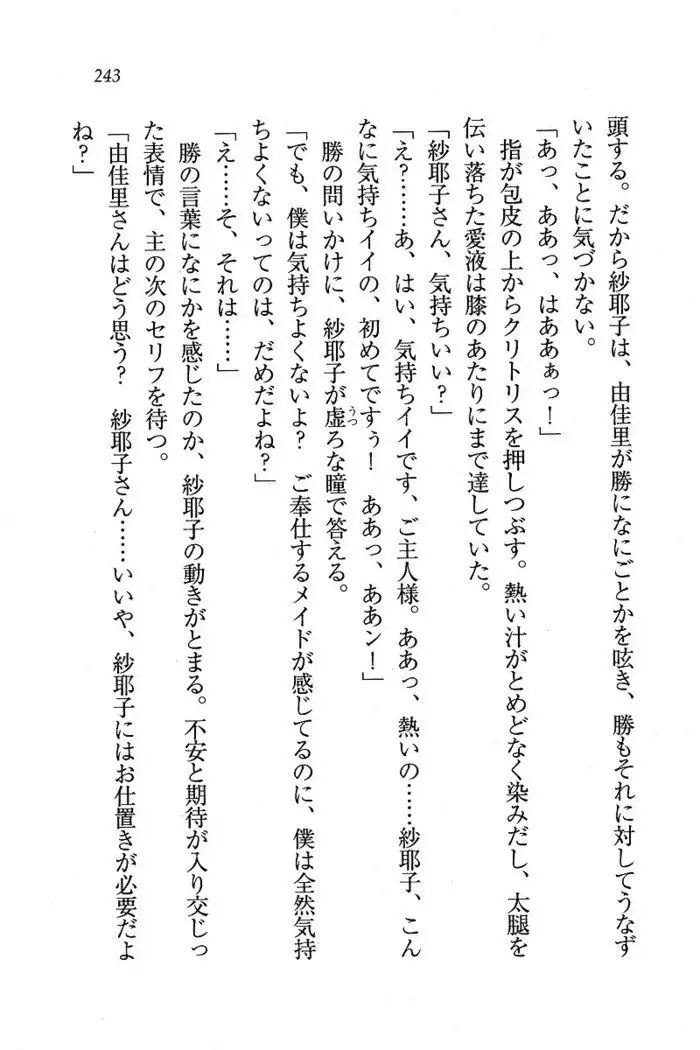 243
頭する。だから紗耶子は、由佳里が勝になにごとかを呟き、勝もそれに対してうなず
いたことに気づかない。
「あっ、ああっ、はああぁっ！」
指が包皮の上からクリトリスを押しつぶす。熱い汁がとめどなく染みだし、太腿を
伝い落ちた愛液は膝のあたりにまで達していた。
「紗耶子さん、気持ちいい？」
「え？……あ、はい、気持ちイイです、ご主人様。ああっ、熱いの……紗耶子、こん
なに気持ちイイの、初めてですぅ！　ああっ、ああン！」
勝の問いかけに、紗耶子が虚ろな瞳で答える。
うつ
「でも、僕は気持ちよくないよ？　ご奉仕するメイドが感じてるのに、僕は全然気持
ちよくないってのは、だめだよね？」
「え……そ、それは……」
勝の言葉になにかを感じたのか、紗耶子の動きがとまる。不安と期待が入り交じっ
た表情で、主の次のセリフを待つ。
「由佳里さんはどう思う？　紗耶子さん……いいや、紗耶子にはお仕置きが必要だよ
ね？」